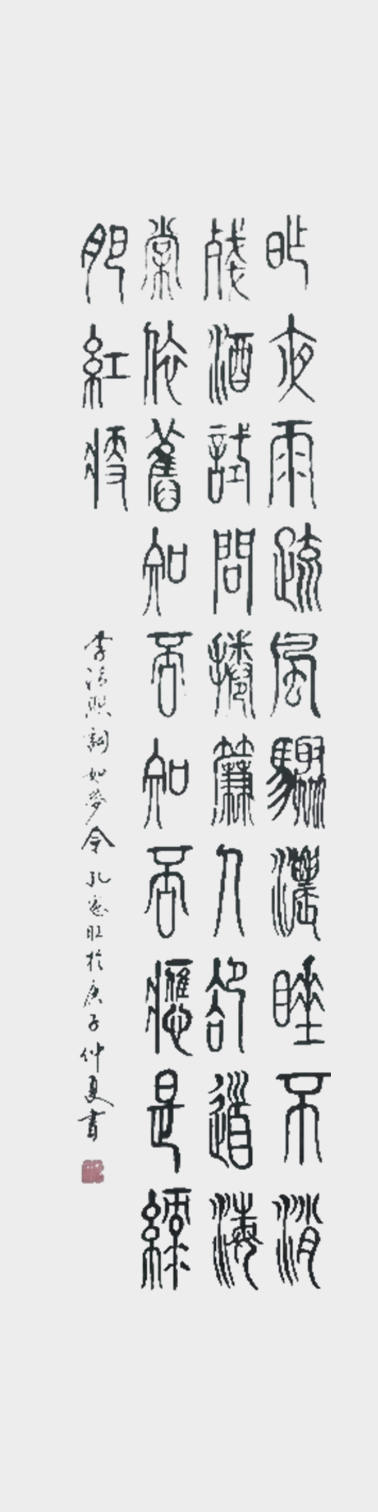 昨夜雨疏風驟濃睡不消
殘酒試問捲簾人卻道海
棠依舊知否知否應是綠
肥紅瘦
李清照詞如夢令孔憲旺於庚子仲夏書